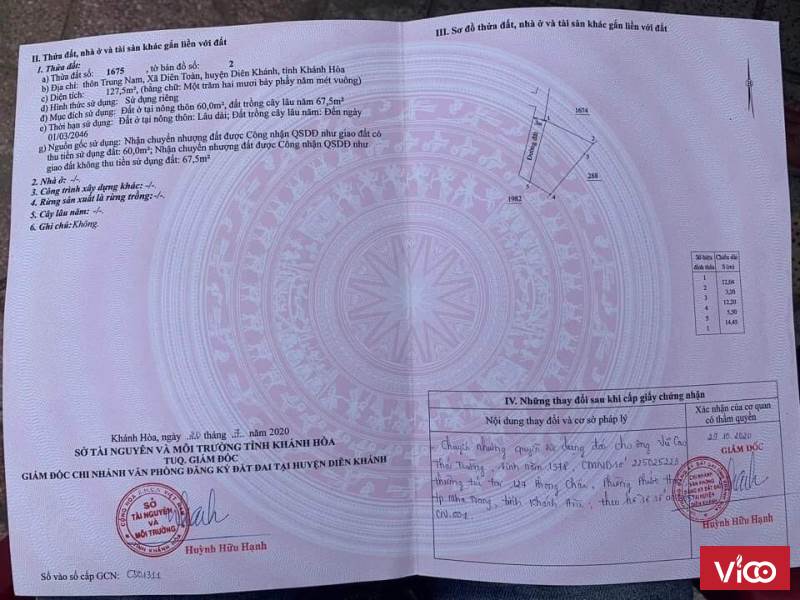 II. Thửa đất, nhà ở và tài sản khác gắn liền với đất
1. Thửa đất:
a) Thửa đất số: 1675, tờ bản đồ số: 2
b) Địa chỉ: thôn Trung Nam, Xã Diên Toàn, huyện Diên Khánh, tỉnh Khánh Hòa
c) Diện tích: 127,5m², (bằng chữ: Một trăm hai mươi bảy phẩy năm mét vuông)
d) Hình thức sử dụng: Sử dụng riêng
đ) Mục đích sử dụng: Đất ở tại nông thôn 60,0m², đất trồng cây lâu năm 67,5m²
e) Thời hạn sử dụng: Đất ở tại nông thôn: Lâu dài; Đất trồng cây lâu năm: Đến ngày
01/03/2046
g) Nguồn gốc sử dụng: Nhận chuyển nhượng đất được Công nhận QSDĐ như giao đất có
thu tiền sử dụng đất: 60,0m²; Nhận chuyển nhượng đất được Công nhận QSDĐ như
giao đất không thu tiền sử dụng đất: 67,5m²
2. Nhà ở: -/-.
3. Công trình xây dựng khác: -/-.
4. Rừng sản xuất là rừng trồng:-/-.
5. Cây lâu năm: -/-.
6. Ghi chú:Không.
Khánh Hòa, ngày tháng năm 2020
SỞ TÀI NGUYÊN VÀ MÔI TRƯỜNG TỈNH KHÁNH HÒA
TUQ. GIÁM ĐỐC
GIÁM ĐỐC CHI NHÁNH VĂN PHÒNG ĐĂNG KÝ ĐẤT ĐAI TẠI HUYỆN DIÊN KHÁNH
SỞ
TÀI NGUYÊN
VÀ
MÔI TRƯỜNG
TỈNH KHÁNH HÒA
Huỳnh Hữu Hạnh
Số vào sổ cấp GCN:
III. Sơ đồ thửa đất, nhà ở và tài sản khác gắn liền với đất
1674
1
2
Đường đất
3
288
5
4
1982
Số hiệu đỉnh thửa
Chiều dài S (m)
1
12,04
2
3,20
3
12,20
4
5,50
5
14,45
1
IV. Những thay đổi sau khi cấp giấy chứng nhận
Nội dung thay đổi và cơ sở pháp lý
Xác nhận của cơ quan
có thẩm quyền
- Chuyển nhượng quyền sử dụng đất cho ông Vũ Cao
Trường, sinh năm CMND số 225025223
thường trú tại Phường Phước
tp Nha Trang, tỉnh Khánh Hòa, theo hồ sơ số
CN.001
29.10.2020
GIÁM ĐỐC
CHI NHÁNH
VĂN PHÒNG
ĐĂNG KÝ ĐẤT ĐAI
TẠI HUYỆN
DIÊN KHÁNH
Huỳnh Hữu Hạnh
ViCO